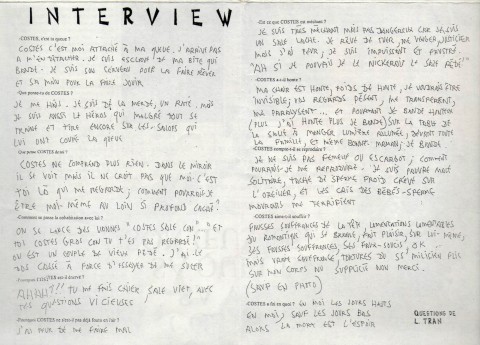 INTERVIEW
-COSTES, c'est ta queue ?
COSTES C'EST MOI ATTACHÉ À MA QUEUE. J'ARRIVE PAS
À M'EN DÉTACHER. JE SUIS ESCLAVE DE MA BITE QUI
BANDE. JE SUIS SON CERVEAU POUR LA FAIRE RÊVER
ET SA MAIN POUR LA FAIRE JOUIR
-Que penses-tu de COSTES ?
JE ME HAIS. JE SUIS DE LA MERDE, UN RATÉ. MAIS
JE SUIS AUSSI LE HÉROS QUI MALGRÉ TOUT SE
TRAINE ET TIRE ENCORE SUR LES SALOPS QUI
LUI ONT COUPÉ LA QUEUE
-Que pense COSTES de toi ?
COSTES NE COMPREND PLUS RIEN. DANS LE MIROIR
IL SE VOIT MAIS IL NE CROIT PAS QUE MOI C'EST
TOI LÀ QUI ME REGARDE; COMMENT POURRAIS-JE
ÊTRE MOI-MÊME AU LOIN SI PROFOND CACHÉ?
-Comment se passe la cohabitation avec lui ?
ON SE LANCE DES VANNES "COSTES SALE CON" "ET
TOI COSTES GROS CON TU T'ES PAS REGARDÉ!"
ON EST UN COUPLE DE VIEUX PÉDÉ. J'AI LE
DOS CASSÉ À FORCE D'ESSAYER DE ME SUCER
AHAH!!! TU ME FAIS CHIER, SALE VIET, AVEC
TES QUESTIONS VICIEUSES
-Pourquoi COSTES ne s'est-il pas déjà foutu en l'air ?
J'AI PEUR DE ME FAIRE MAL
-Est-ce que COSTES est méchant ?
JE SUIS TRÈS MÉCHANT MAIS PAS DANGEREUX CAR JE SUIS
UN SALE LÂCHE. JE RÊVE DE TUER, ME VENGER, JUSTICIER
MAIS J'AI PEUR, JE SUIS IMPUISSANT ET FRUSTRÉ.
"AH SI JE POUVAIS JE LE NICKERAIS LE SALE PÉDÉ!"
-COSTES a-t-il honte ?
MA CHAIR EST HONTE, POIDS DE HAINE, JE VOUDRAIS ÊTRE
INVISIBLE; VOS REGARDS PÈSENT, ME TRANSPERCENT,
ME PARALYSENT... ET POURTANT JE BANDE HONTEUX
(PLUS J'AI HONTE PLUS JE BANDE) SUR LA TABLE DE
LA SALLE À MANGER LUMIÈRE ALLUMÉE, DEVANT TOUTE
LA FAMILLE, ET MÊME DEVANT MAMAN, JE BANDE
JE NE SUIS PAS FEMELLE OU ESCARGOT; COMMENT
POURRAIS-JE ME REPRODUIRE. JE SUIS PAUVRE MÂLE
SOLITAIRE, TACHE DE SPERME FROID CREVÉ SUR
L'OREILLER, ET LES CRIS DES BÉBÉS-SPERME
MOURANTS ME TERRIFIENT
FAUSSES SOUFFRANCES DE LA TÊTE, LAMENTATIONS
DU ROMANTIQUE QUI SE BRANLE, FAIT PLAISIR, SUR LUI MÊME,
SES FAUSSES SOUFFRANCES, SES FAUX-SOUCIS, OK...
MAIS VRAIE SOUFFRANCE, TORTURES DU
SUR MON CORPS AU SUPPLICE NON MERCI.
(SAUF EN PHOTO)
-COSTES a foi en quoi ?
EN MOI LES JOURS HAUTS
EN MOI, SAUF LES JOURS BAS
ALORS LA MORT EST L'ESPOIR
QUESTIONS DE
L TRAN